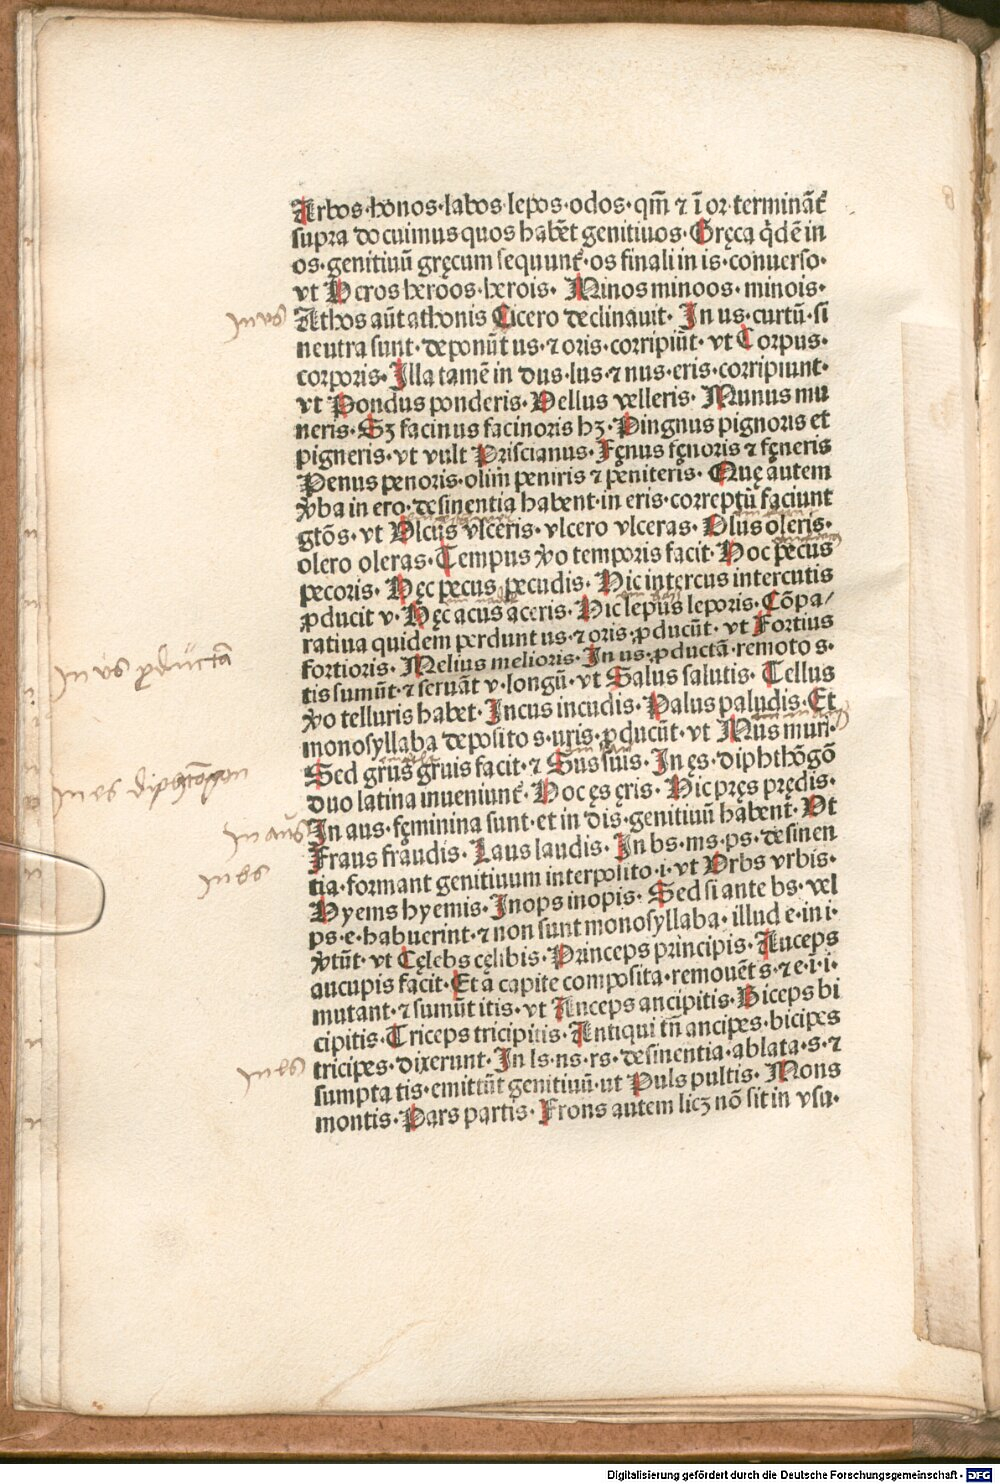 Arbos·honos·labos·lepos·odos·qm̄ ⁊ ī or·terminãt᷑
supra docuimus quos habẽt genitiuos·Gręca q̇dẽ in
os·genitiuũ gręcum sequunt᷑·os finali in is·conuerso·
vt Heros heroos·herois· Minos minoos·minois·
In vs
Athos aũt athonis Cicero declinauit· In us·curtũ·si
neutra sunt·deponũt us·⁊ oris·corripiũt· vt Corpus·
corporis·Illa tamẽ in dus·lus·⁊ nus·eris·corripiunt·
vt Pondus ponderis·Vellus velleris· Munus mu
neris·Sꝫ facinus facinoris hꝫ·Pingnus pignoris et
pigneris·vt vult Priscianus·Fęnus fęnoris ⁊ fęneris
Penus penoris·olim peniris ⁊ peniteris· Quę autem
v̾ba in ero·desinentia habent·in eris·correptũ faciunt
gtõs·vt Vlcus vlceris·vlcero vlceras·Olus oleris·
olero oleras·Tempus v̾o temporis facit·Hoc pecus
pecoris·Hęc pecus pecudis·Hic intercus intercutis
ꝓducit v·Hęc acus aceris·Hic lepus leporis·Cõpa/
ratiua quidem perdunt us·⁊ oris·ꝓducũt·vt Fortius
In vs ꝓductã
fortioris·Melius melioris·In us·ꝓductã·remoto s·
tis sumũt·⁊ seruãt v·longũ·vt Salus salutis· Tellus
v̾o telluris habet·Incus incudis·Palus paludis·Et
monosyllaba deposito s·uris·ꝓducũt·vt Mus muri·
Sed grus gruis facit·⁊ Sus suis·In ęs·diphthõgõ
In es diphtõgon
duo latina inueniunt᷑·Hoc ęs ęris·Hic pręs prędis·
In aus
In aus·fęminina sunt·et in dis·genitiuũ habent·Vt
Fraus fraudis·Laus laudis·In bs·ms·ps·desinen
In bs
tia·formant genitiuum interpolito·i·vt Vrbs vrbis·
Hyems hyemis·Inops inopis·Sed si ante bs·vel
ps·e·habuerint·⁊ non sunt monosyllaba·illud e·in i·
v̾tũt·vt Cęlebs cęlibis·Princeps principis·Auceps
aucupis facit·Et a capite composita·remouẽt s·⁊ e·i·i·
mutant·⁊ sumũt itis·vt Anceps ancipitis·Biceps bi
cipitis·Triceps tricipitis·Antiqui tñ ancipes·bicipes
In ls
tricipes·dixerunt·In ls·ns·rs·desinentia·ablata·s·⁊
sumpta tis·emittũt genitiuũ·ut Puls pultis·Mons
montis·Pars partis·Frons autem licꝫ nõ sit in vsu·
Digitalisierung gefördert durch die Deutsche Forschungsgemeinschaft - DFG